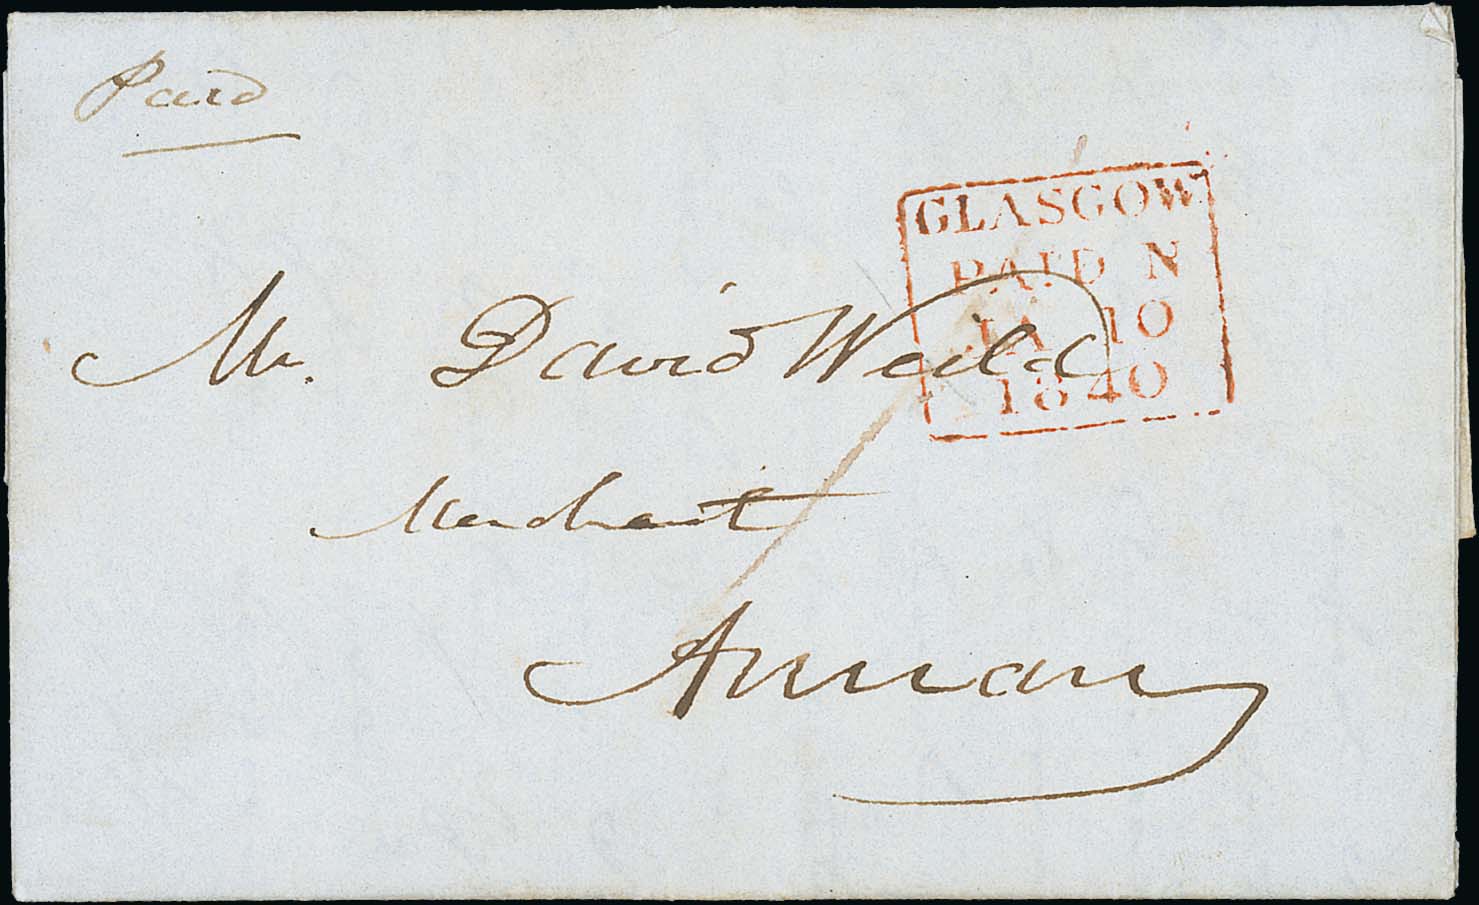 Paid
GLASGOW
PAID N
JA 10
1840
Mr. David Weild
Merchant
Annan